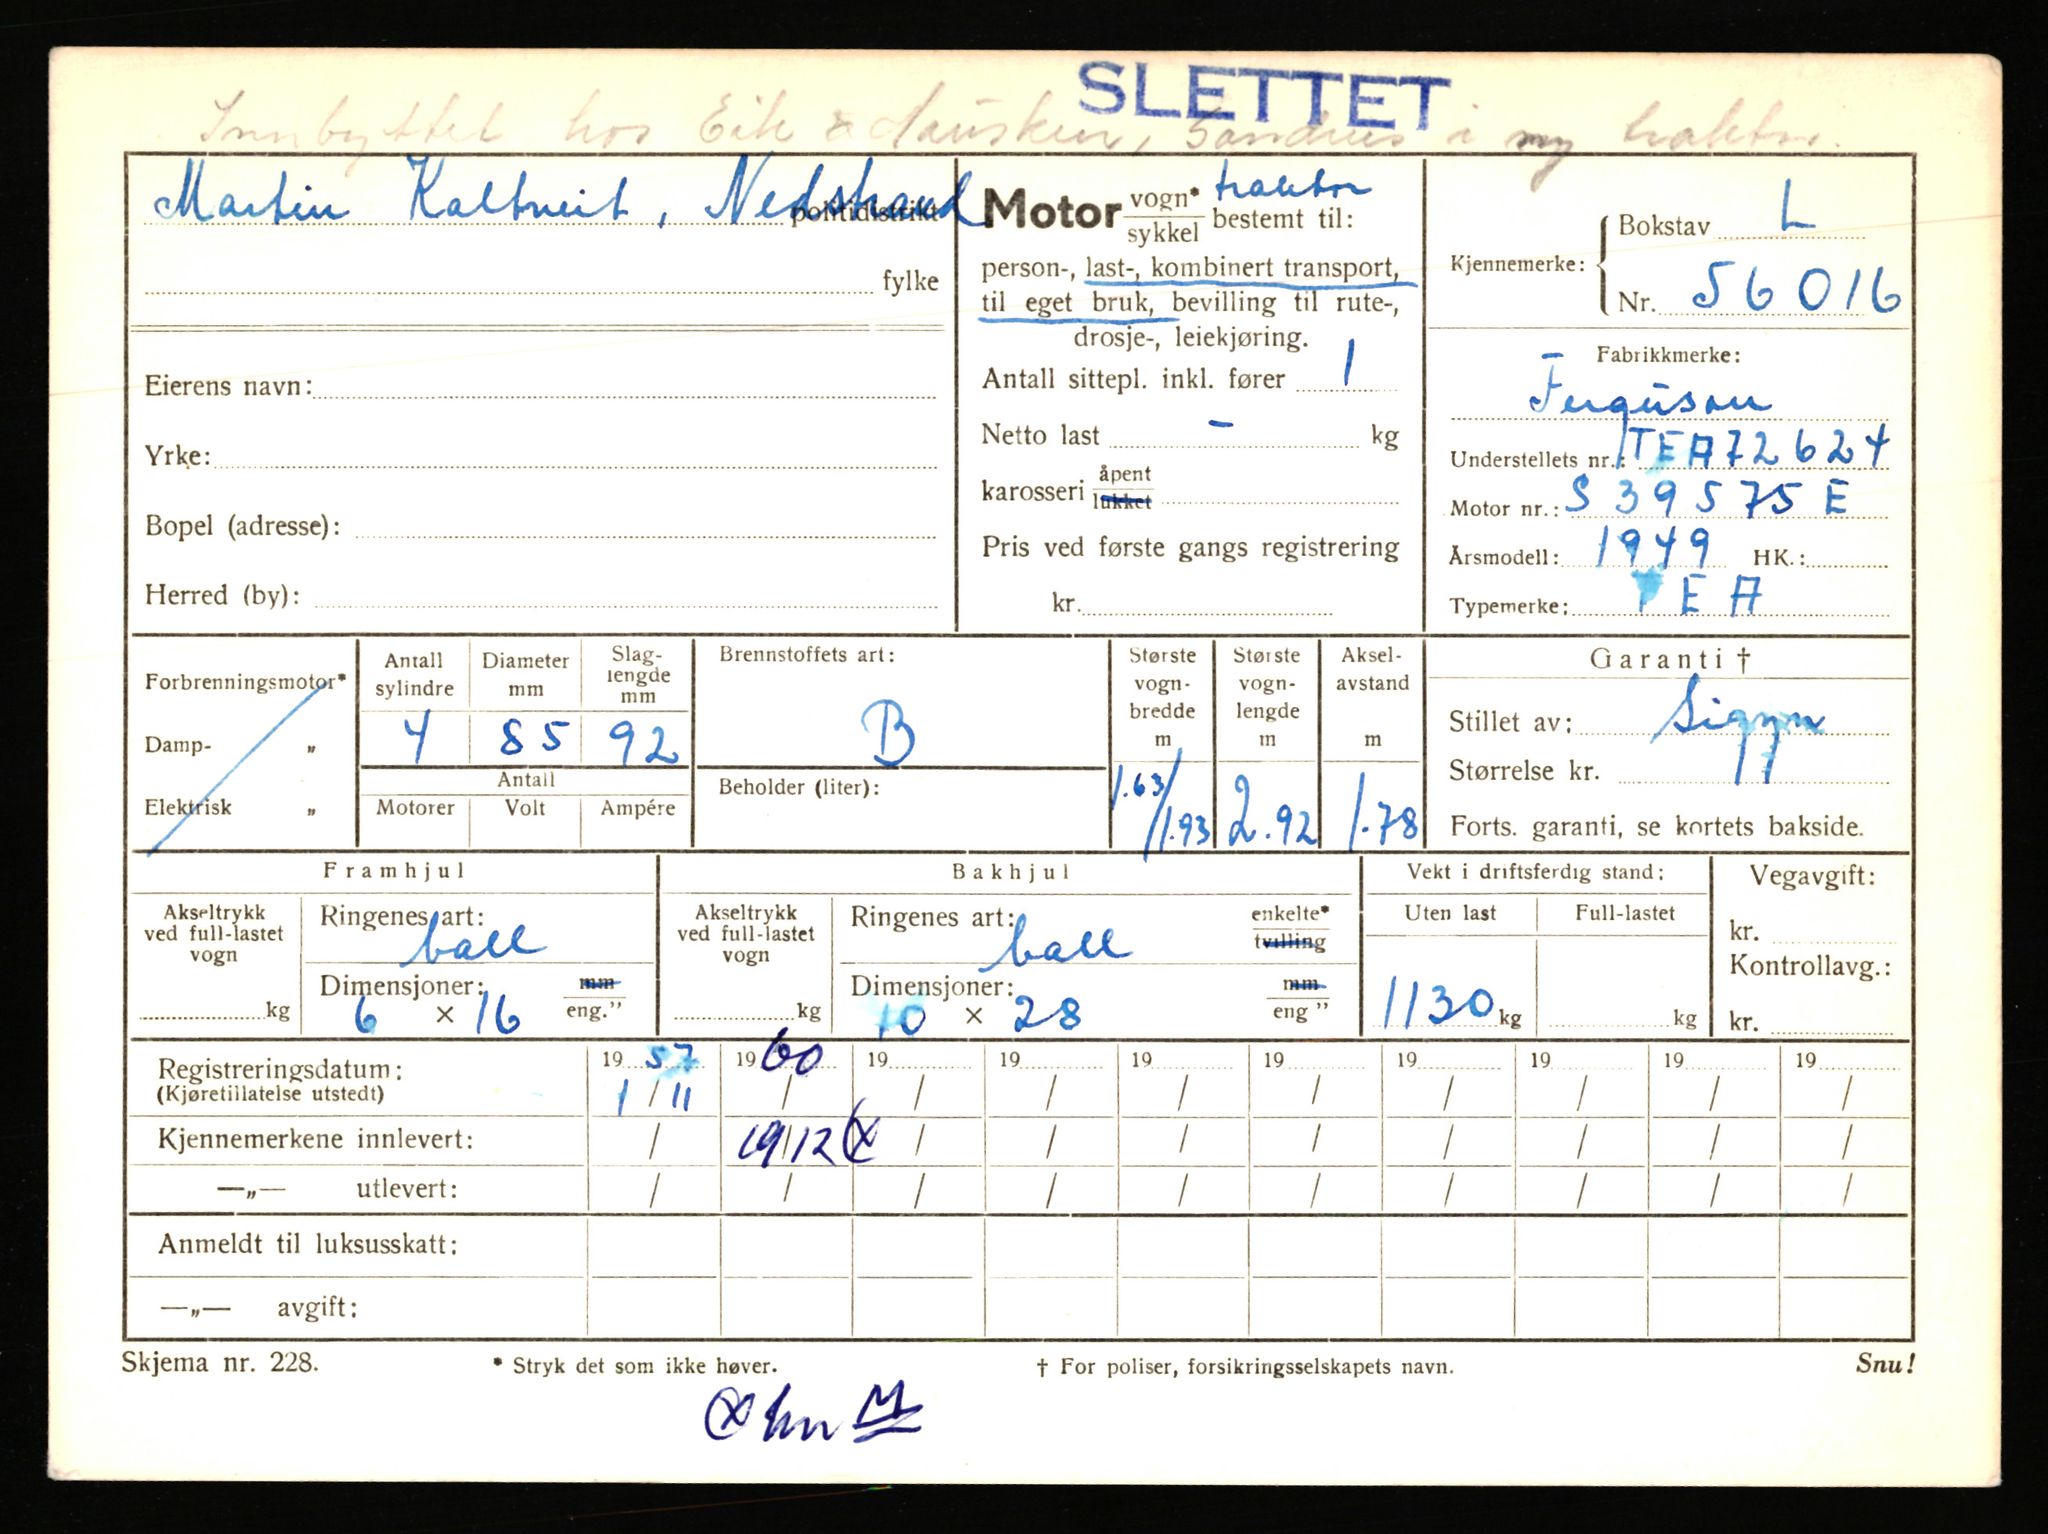 SLETTET
Innbyttet hos Eik & Hausken, Sandnes i ny traktor.
Martin Kaltveit, Nedstrand politidistrikt
fylke
Eierens navn:
Yrke:
Bopel (adresse):
Herred (by):
Motor vogn* sykkel traktor bestemt til:
person-, last-, kombinert transport,
til eget bruk, bevilling til rute-,
drosje-, leiekjøring.
Antall sittepl. inkl. fører 1
Netto last - kg
karosseri åpent lukket
Pris ved første gangs registrering
kr.
Kjennemerke: Bokstav L
Nr. 56016
Fabrikkmerke:
Ferguson
Understellets nr.: TEA72624
Motor nr.: S 39575 E
Årsmodell: 1949 HK.:
Typemerke: TEA
Forbrenningsmotor*
Damp- „
Elektrisk „
Antall sylindre Diameter mm Slag-lengde mm
4 85 92
Antall
Motorer Volt Ampére
Brennstoffets art:
B
Beholder (liter):
Største vogn-bredde m
1.63/1.93
Største vogn-lengde m
2.92
Aksel-avstand m
1.78
Garanti †
Stillet av: Sigyn
Størrelse kr.
Forts. garanti, se kortets bakside.
Framhjul
Akseltrykk ved full-lastet vogn
kg
Ringenes art:
ball
Dimensjoner: mm eng."
6 × 16
Bakhjul
Akseltrykk ved full-lastet vogn
kg
Ringenes art: enkelte* tvilling
ball
Dimensjoner: mm eng "
10 × 28
Vekt i driftsferdig stand:
Uten last Full-lastet
1130 kg kg
Vegavgift:
kr.
Kontrollavg.:
kr.
Registreringsdatum: 19 57 19 60 19 19 19 19 19 19 19 19
(Kjøretillatelse utstedt) 1 / 11 / / / / / / / / /
Kjennemerkene innlevert: / 19/12 (x / / / / / / / /
—„— utlevert: / / / / / / / / / /
Anmeldt til luksusskatt:
—„— avgift:
Skjema nr. 228. * Stryk det som ikke høver. † For poliser, forsikringsselskapets navn. Snu!